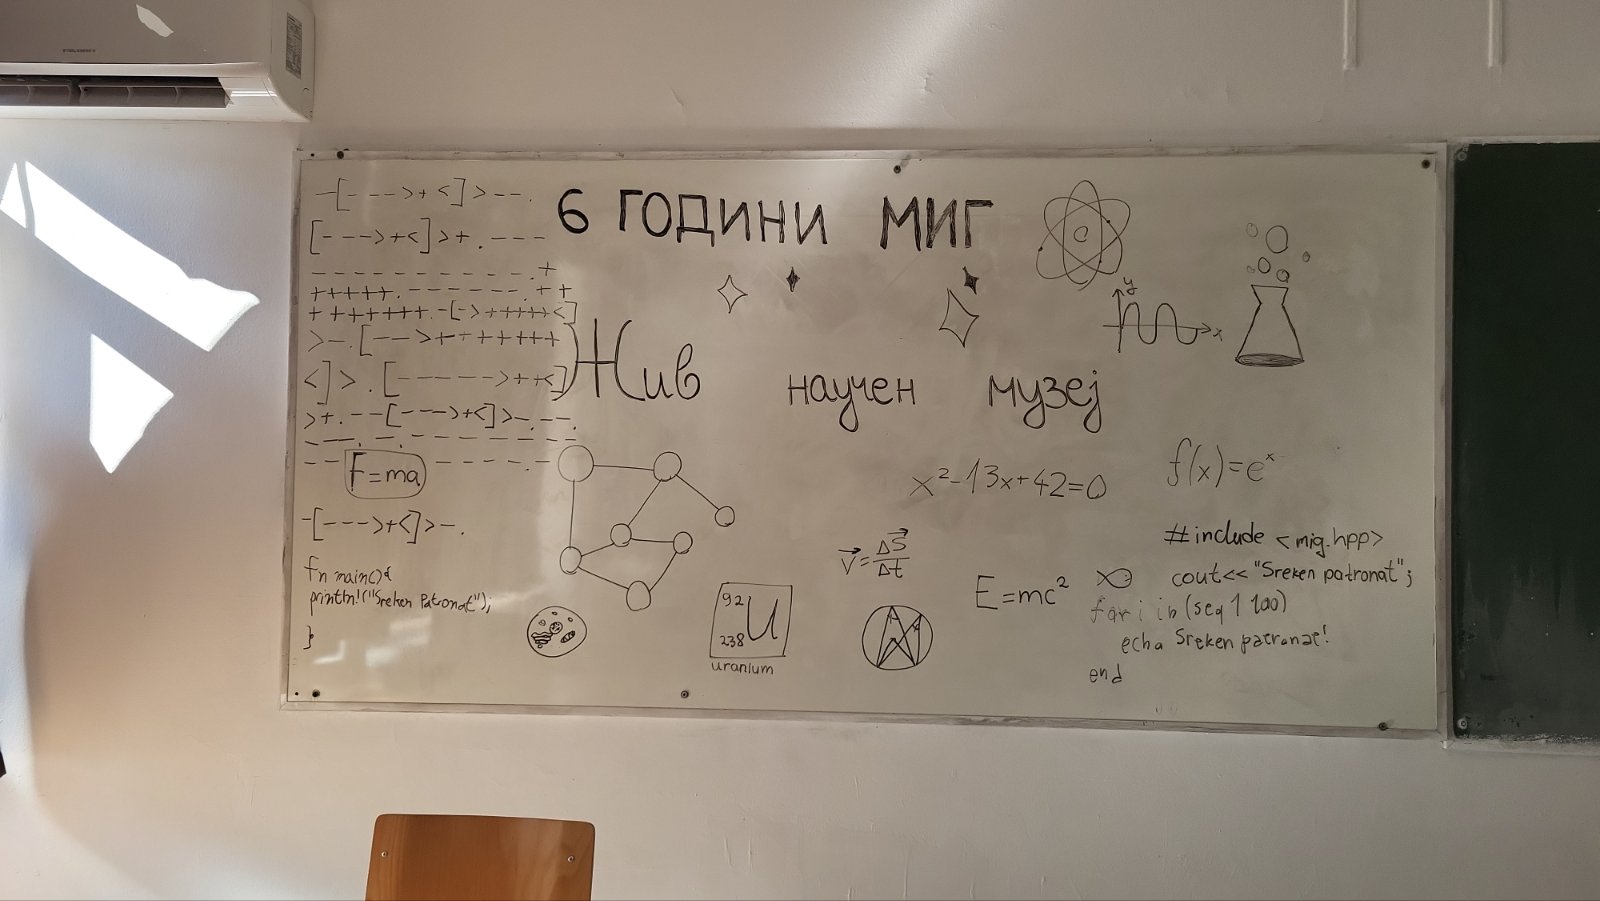 -[--->+<]>--.
[--->+<]>+.---
-----------.+
+++++.-------.++
+++++++.-[->+++++<]
>-.[-->+++++++
<]>.[----->++<]
>+.--[--->+<]>-.--.
---.-.--------
--------.-
F=ma
-[--->+<]>-.
fn main(){
println!("Sreken Patronat");
}
6 ГОДИНИ МИГ
Жив научен музеј
e
y
x
x²-13x+42=0
f(x)=eˣ
v=ΔS/Δt
E=mc²
92
U
238
uranium
#include <mig.hpp>
cout<<"Sreken patronat";
for i in (seq 1 100)
echo Sreken patronat!
end